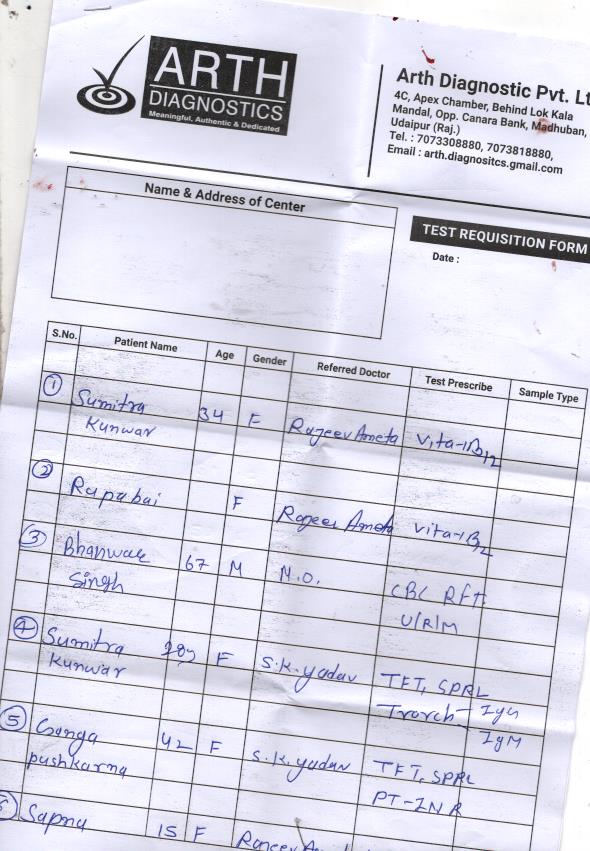 ARTH
DIAGNOSTICS
Meaningful, Authentic & Dedicated
Arth Diagnostic Pvt. Lt
4C, Apex Chamber, Behind Lok Kala
Mandal, Opp. Canara Bank, Madhuban,
Udaipur (Raj.)
Tel. : 7073308880, 7073818880,
Email : arth.diagnositcs.gmail.com
Name & Address of Center
TEST REQUISITION FORM
Date :
S.No. Patient Name Age Gender Referred Doctor Test Prescribe Sample Type
1 Sumitra 34 F Rajeev Ameta Vita-B12
Kunwar
2 Rupabai F Rajeev Ameta Vita-B12
3 Bhanwar 67 M M.O. CBC RFT
Singh U/R/M
4 Sumitra F S.K. Yadav TFT,
Kunwar IgG
IgM
5 Ganga 42 F S.K. Yadav TFT,
pushkarna PT-INR
6 Sapna 15 F